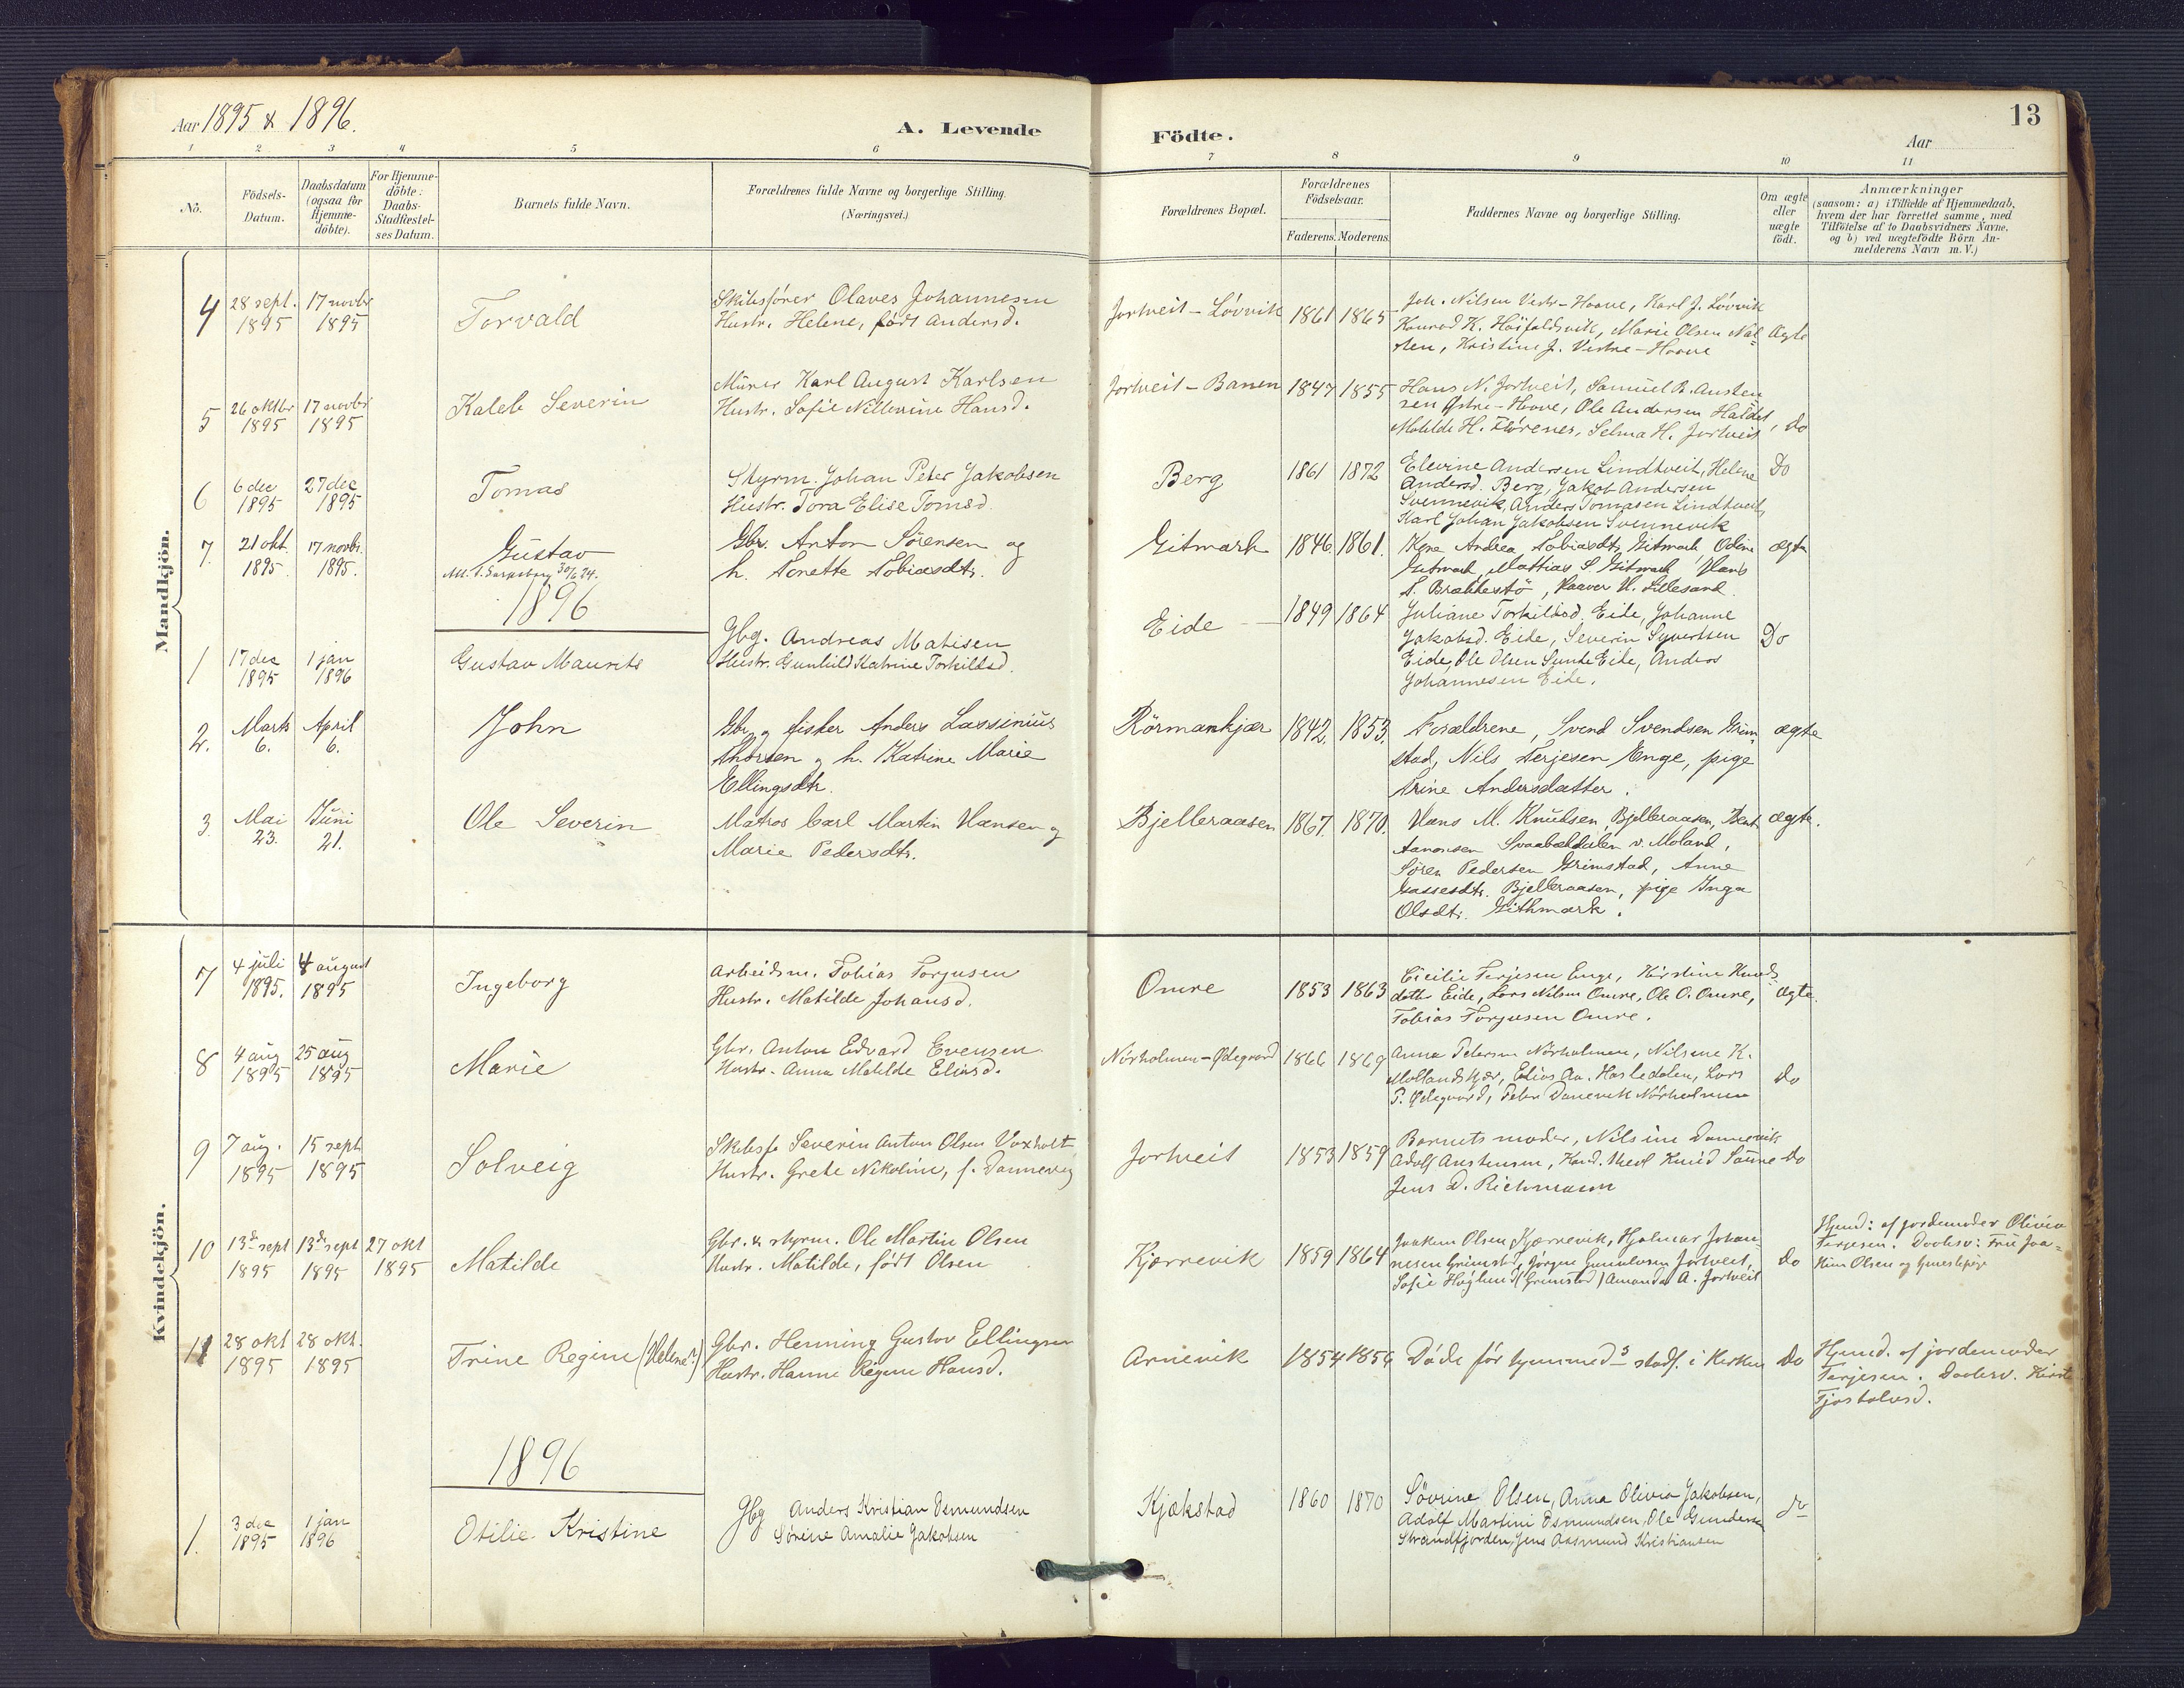 Aar 1895 & 1896.
A. Levende
Födte.
13
Aar
1 2 3 4 5 6 7 8 9 10 11
No.
Födsels-
Datum.
Daabsdatum
(ogsaa for
Hjemme-
döbte).
For Hjemme-
döbte:
Daabs-
Stadfæstel-
ses Datum.
Barnets fulde Navn.
Forældrenes fulde Navne og borgerlige Stilling.
(Næringsvei.)
Forældrenes Bopæl.
Forældrenes
Födselsaar.
Faderens. Moderens.
Faddernes Navne og borgerlige Stilling.
Om ægte
eller
uægte
födt.
Anmærkninger
(saasom: a) i Tilfælde af Hjemmedaab,
hvem der har forrettet samme, med
Tilföielse af to Daabsvidners Navne,
og b) ved uægtefödte Börn An-
melderens Navn m. V.)
Mandkjön.
4
28 sept. 1895
17 novbr 1895
Torvald
Skibsfører Olaves Johannesen
Hustr. Helene, født Andersd.
Jortveit - Løvvik
1861 1865
Joh. Nilsen Vestr-Haave, Karl J. Løvvik
Konrad K. Höifoldsvik, Marie Olsen Nal-
ten, Kristine J. Vestre-Haave
Ægte
5
26 oktbr 1895
17 novbr 1895
Kaleb Severin
Murer Karl August Karlsen
Hustr. Sofie Nillevine Hansd.
Jortveit - Banen
1847 1855
Hans N. Jortveit, Samuel B. Austen
sen Østre-Haave, Ole Andersen Haldet,
Matilde H. Flørenes, Selma H. Jortveit
do
6
6 dec 1895
27 dec 1895
Tomas
Styrm. Johan Peter Jakobsen
Hustr. Tora Elise Tomsd.
Berg
1861 1872
Elevine Andersen Lindtveit, Helene
Andersd. Berg, Jakob Andersen
Svennevik, Anders Tomasen Lindtveit,
Karl Johan Jakobsen Svennevik
Do
7.
21 okt. 1895
17 novbr. 1895.
Gustav
Att. t. Sarpsborg 30/6 24.
Gbr. Anton Sørensen og
h. Tonette Tobiasdtr.
Gitmark
1846 1861.
Andrea Tobiasdtr. Gitmark, Odine
Gitmark, Mattias S. Gitmark, Hans
S. Brækkestö, Haaver H. Lillesand.
ægte
1896
1
17 dec 1895
1 jan 1896
Gustav Maurits
Gbg. Andreas Matisen
Hustr. Gunhild Katrine Torkildsd.
Eide
1849 1864
Juliane Torkildsd. Eide, Johanne
Jakobsd. Eide, Severin Syvertsen
Eide, Ole Olsen Sunde Eide, Anders
Johannesen Eide.
Do
2.
Marts 6.
April 6.
John
Gbr. og fisker Anders Lassinius
Thorsen og h. Katrine Marie
Ellingsdtr.
Rörmankjær
1842. 1853.
Forældrene, Svend Svendsen Grim-
stad, Nils Terjesen Enge, pige
Trine Andersdatter.
ægte
3.
Mai 23.
Juni 21.
Ole Severin
Matros Carl Martin Hansen og
Marie Pedersdtr.
Bjelleraasen
1867. 1870.
Hans M. Knudsen, Bjelleraasen, Bent
Aanonsen Svaabækdalen v. Moland,
Søren Pedersen Grimstad, Anne
Gassesdtr. Bjelleraasen, pige Inga
Olsdtr. Githmark.
ægte.
Kvindekjön.
7
4 juli 1895.
4 august 1895
Ingeborg
Arbeidsm. Tobias Torjusen
Hustr. Matilde Johansd.
Omre
1853 1863
Cicilie Terjesen Enge, Kirstine Knuds-
dottr Eide, Lars Nilsen Omre, Ole O. Omre,
Tobias Torjusen Omre.
Ægte.
8
4 aug 1895
25 aug 1895
Marie
Gbr. Anton Edvard Evensen
Hustr. Anna Matilde Eliasd.
Nörholmen - Ødegaard
1866 1869
Anna Petersen Nörholmen, Nilsine K.
Mollandskjær, Elias Aa. Hasledalen, Lars
P. Ødegaard, Peter Danevik Nörholmen
do
9
7 aug. 1895
15 sept 1895
Solveig
Skibsfr Severin Anton Olsen Voxholt
Hustr. Grete Nikoline, f. Dannevig
Jortveit
1853 1859
Barnets moder, Nilsine Dannevik
Adolf Austensen, Kand. theol Knud Saune
Jens D. Richmann
do
10
13de sept 1895
13de sept 1895
27 okt 1895
Matilde
Gbr. & styrm. Ole Martin Olsen
Hustr. Matilde, født Olsen
Kjærrevik
1859 1864
Joakum Olsen Kjærrevik, Hjalmar Johan-
nesen Grimstad, Jörgen Gunulvsen Jortveit,
Sofie Höglund (Grimstad) Amanda A. Jortveit
do
Hjmd: af jordemoder Olivia
Terjesen. Daabsv: Fru Joa-
kim Olsen og tjenestepige
11
28 okt 1895
28 okt. 1895
Trine Regine (Helene?)
Gbr. Henning Gustav Ellingsen
Hustr. Hanne Regine Hansd.
Arnevik
1854 1856
Döde för hjemmed-s stadf. i kirken
do
Hjmd. af jordemoder
Terjesen. Daabsv. Kirste
Fjostolvsd.
1896
1.
3 dec 1895
1 jan 1896
Otilie Kristine
Gbg Anders Kristian Osmundsen
Sörine Amalie Jakobsen
Kjækstad
1860 1870
Sövrine Olsen, Anna Olivia Jakobsen,
Adolf Martini Osmundsen, Ole Gundersen
Strandfjorden, Jens Aasmund Kristiansen
do